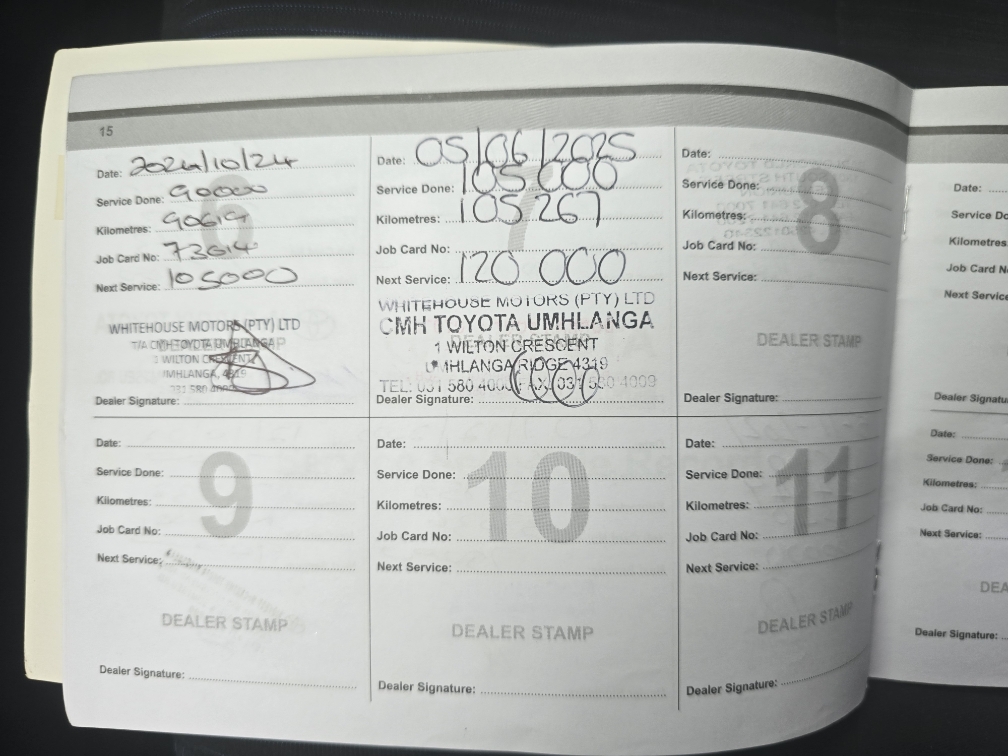 15
6
Date: 2024/10/24
Service Done: 90000
Kilometres: 90619
Job Card No: 73614
Next Service: 105000
WHITEHOUSE MOTORS (PTY) LTD
T/A CMH TOYOTA UMHLANGA
1 WILTON CRESCENT
UMHLANGA, 4319
031 580
Dealer Signature:
7
Date: 05/06/2025
Service Done: 105 000
Kilometres: 105 267
Job Card No:
Next Service: 120 000
WHITEHOUSE MOTORS (PTY) LTD
CMH TOYOTA UMHLANGA
DEALER STAMP
1 WILTON CRESCENT
UMHLANGA RIDGE 4319
TEL: 031 580 400 FAX: 031 580 4009
Dealer Signature:
8
Date:
Service Done:
Kilometres:
Job Card No:
Next Service:
DEALER STAMP
Dealer Signature:
9
Date:
Service Done:
Kilometres:
Job Card No:
Next Service:
DEALER STAMP
Dealer Signature:
10
Date:
Service Done:
Kilometres:
Job Card No:
Next Service:
DEALER STAMP
Dealer Signature:
11
Date:
Service Done:
Kilometres:
Job Card No:
Next Service:
DEALER STAMP
Dealer Signature:
Date:
Service Do
Kilometres
Job Card N
Next Servic
Dealer Signatu
Date:
Service Done:
Kilometres:
Job Card No:
Next Service:
DEA
Dealer Signature: